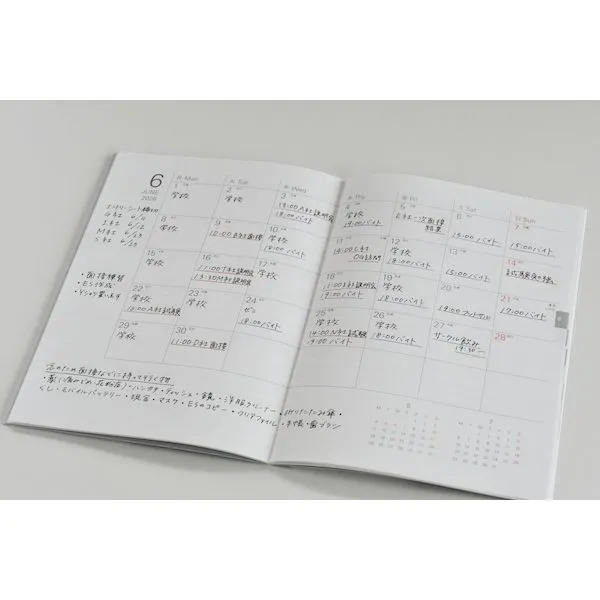 6
JUNE
2026
月 Mon
火 Tue
水 Wed
木 Thu
金 Fri
土 Sat
日 Sun
1
学校
2
学校
3
13:00 A社説明会
18:00 バイト
4
学校
19:00 バイト
5
E社一次面接
結果
6
15:00 バイト
7
15:00 バイト
エントリーシート締切
G社 6/6
I社 6/12
M社 6/23
S社 6/29
8
学校
9
10:00 B社面接
10
学校
18:00 バイト
11
14:00 C社
OG訪問
12
学校
18:00 バイト
13
15:00 バイト
14
・面接練習
・ES作成
・Yシャツ買い足す
15
学校
16
11:00 T社説明会
13:30 M社説明会
17
学校
18
学校
18:00 バイト
19
学校
18:00 バイト
20
19:00 フットサル
21
19:00 バイト
22
学校
10:00 A社試験
23
学校
24
ゼミ
18:00 バイト
25
学校
14:00 N社試験
19:00 バイト
26
学校
18:00 バイト
27
サークル飲み
19:30〜
28
29
学校
30
11:00 D社面接
念のため面接などに持って行く物
ハンカチ・ティッシュ・鏡・洋服クリーナー・折りたたみ傘・
くし・モバイルバッテリー・現金・マスク・ESのコピー・クリアファイル・手帳・歯ブラシ
5
7